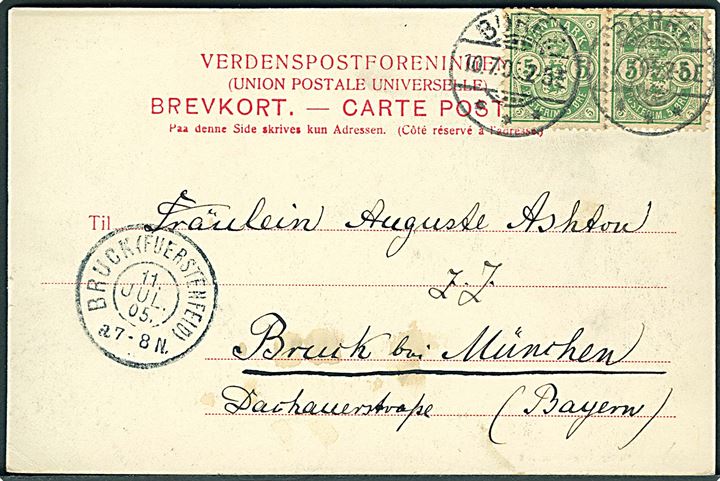 VERDENSPOSTFORENINGEN
(UNION POSTALE UNIVERSELLE)
BREVKORT. — CARTE POSTALE
Paa denne Side skrives kun Adressen. (Côté réservé à l'adresse)
DANMARK
5 5
POSTFRIM. 5 ØRE
5 5
POSTFRIM. 5 ØRE
10.7.0
Til Fräulein Auguste Ashton
z. Z.
Bruck bei München
Dachauerstraße (Bayern)
BRUCK (FUERSTENFELD)
11.
JUL.
05.
a. 7-8 N.